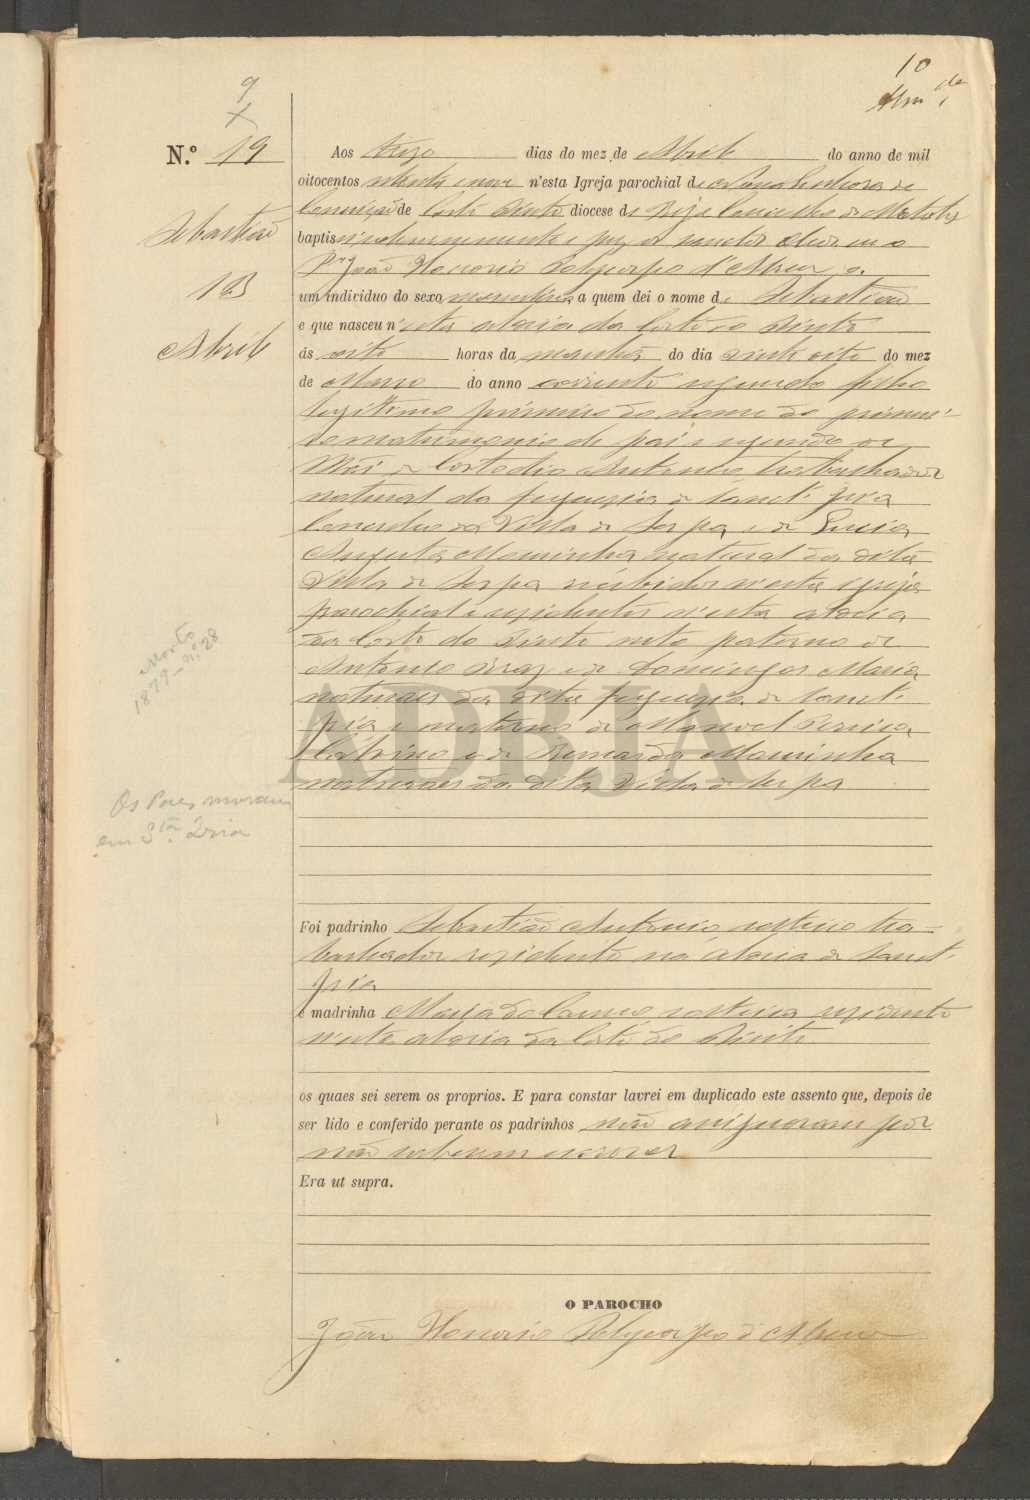 10
9
N.º 19
Aos treze dias do mez de Abril do anno de mil
oitocentos setenta e nove n'esta Igreja parochial de Nossa Senhora da
Conceição de Corte Pinto diocese de Beja Concelho de Mertola
baptisei solemnemente e puz os santos oleos eu o
Pr. João Honorio Polycarpo d'Abreu a
um individuo do sexo masculino, a quem dei o nome de Sebastião
e que nasceu n'esta aldeia da Corte do Pinto
ás oito horas da manhã do dia vinte oito do mez
de Março do anno corrente segundo filho
legitimo primeiro do nome do primei-
ro matrimonio de pai e segundo de
Mãi de Custodio Antonio trabalhador
natural da freguezia de Sanct' Iria
Concelho da Villa de Serpa e de Luzia
Augusta Maminha natural da dita
Villa de Serpa recebidos n'esta Igreja
parochial e residentes n'esta aldeia
da Corte do Pinto neto paterno de
Antonio Braz e de Domingas Maria
naturaes da dita freguezia de Sanct'
Iria e materno de Manoel Pereira
e de Bernarda Maminha
naturaes da dita Villa de Serpa
Sebastião
13
Abril
Morto
1879 - nº 28
Os Paes moram
em Stª Iria
ADBJA
Foi padrinho Sebastião Antonio solteiro tra-
balhador residente na aldeia de Sanct'
Iria
e madrinha Maria do Carmo solteira residente
n'esta aldeia da Corte do Pinto
os quaes sei serem os proprios. E para constar lavrei em duplicado este assento que, depois de
ser lido e conferido perante os padrinhos não assignaram por
não saberem escrever
Era ut supra.
O PAROCHO
João Honorio Polycarpo d'Abreu